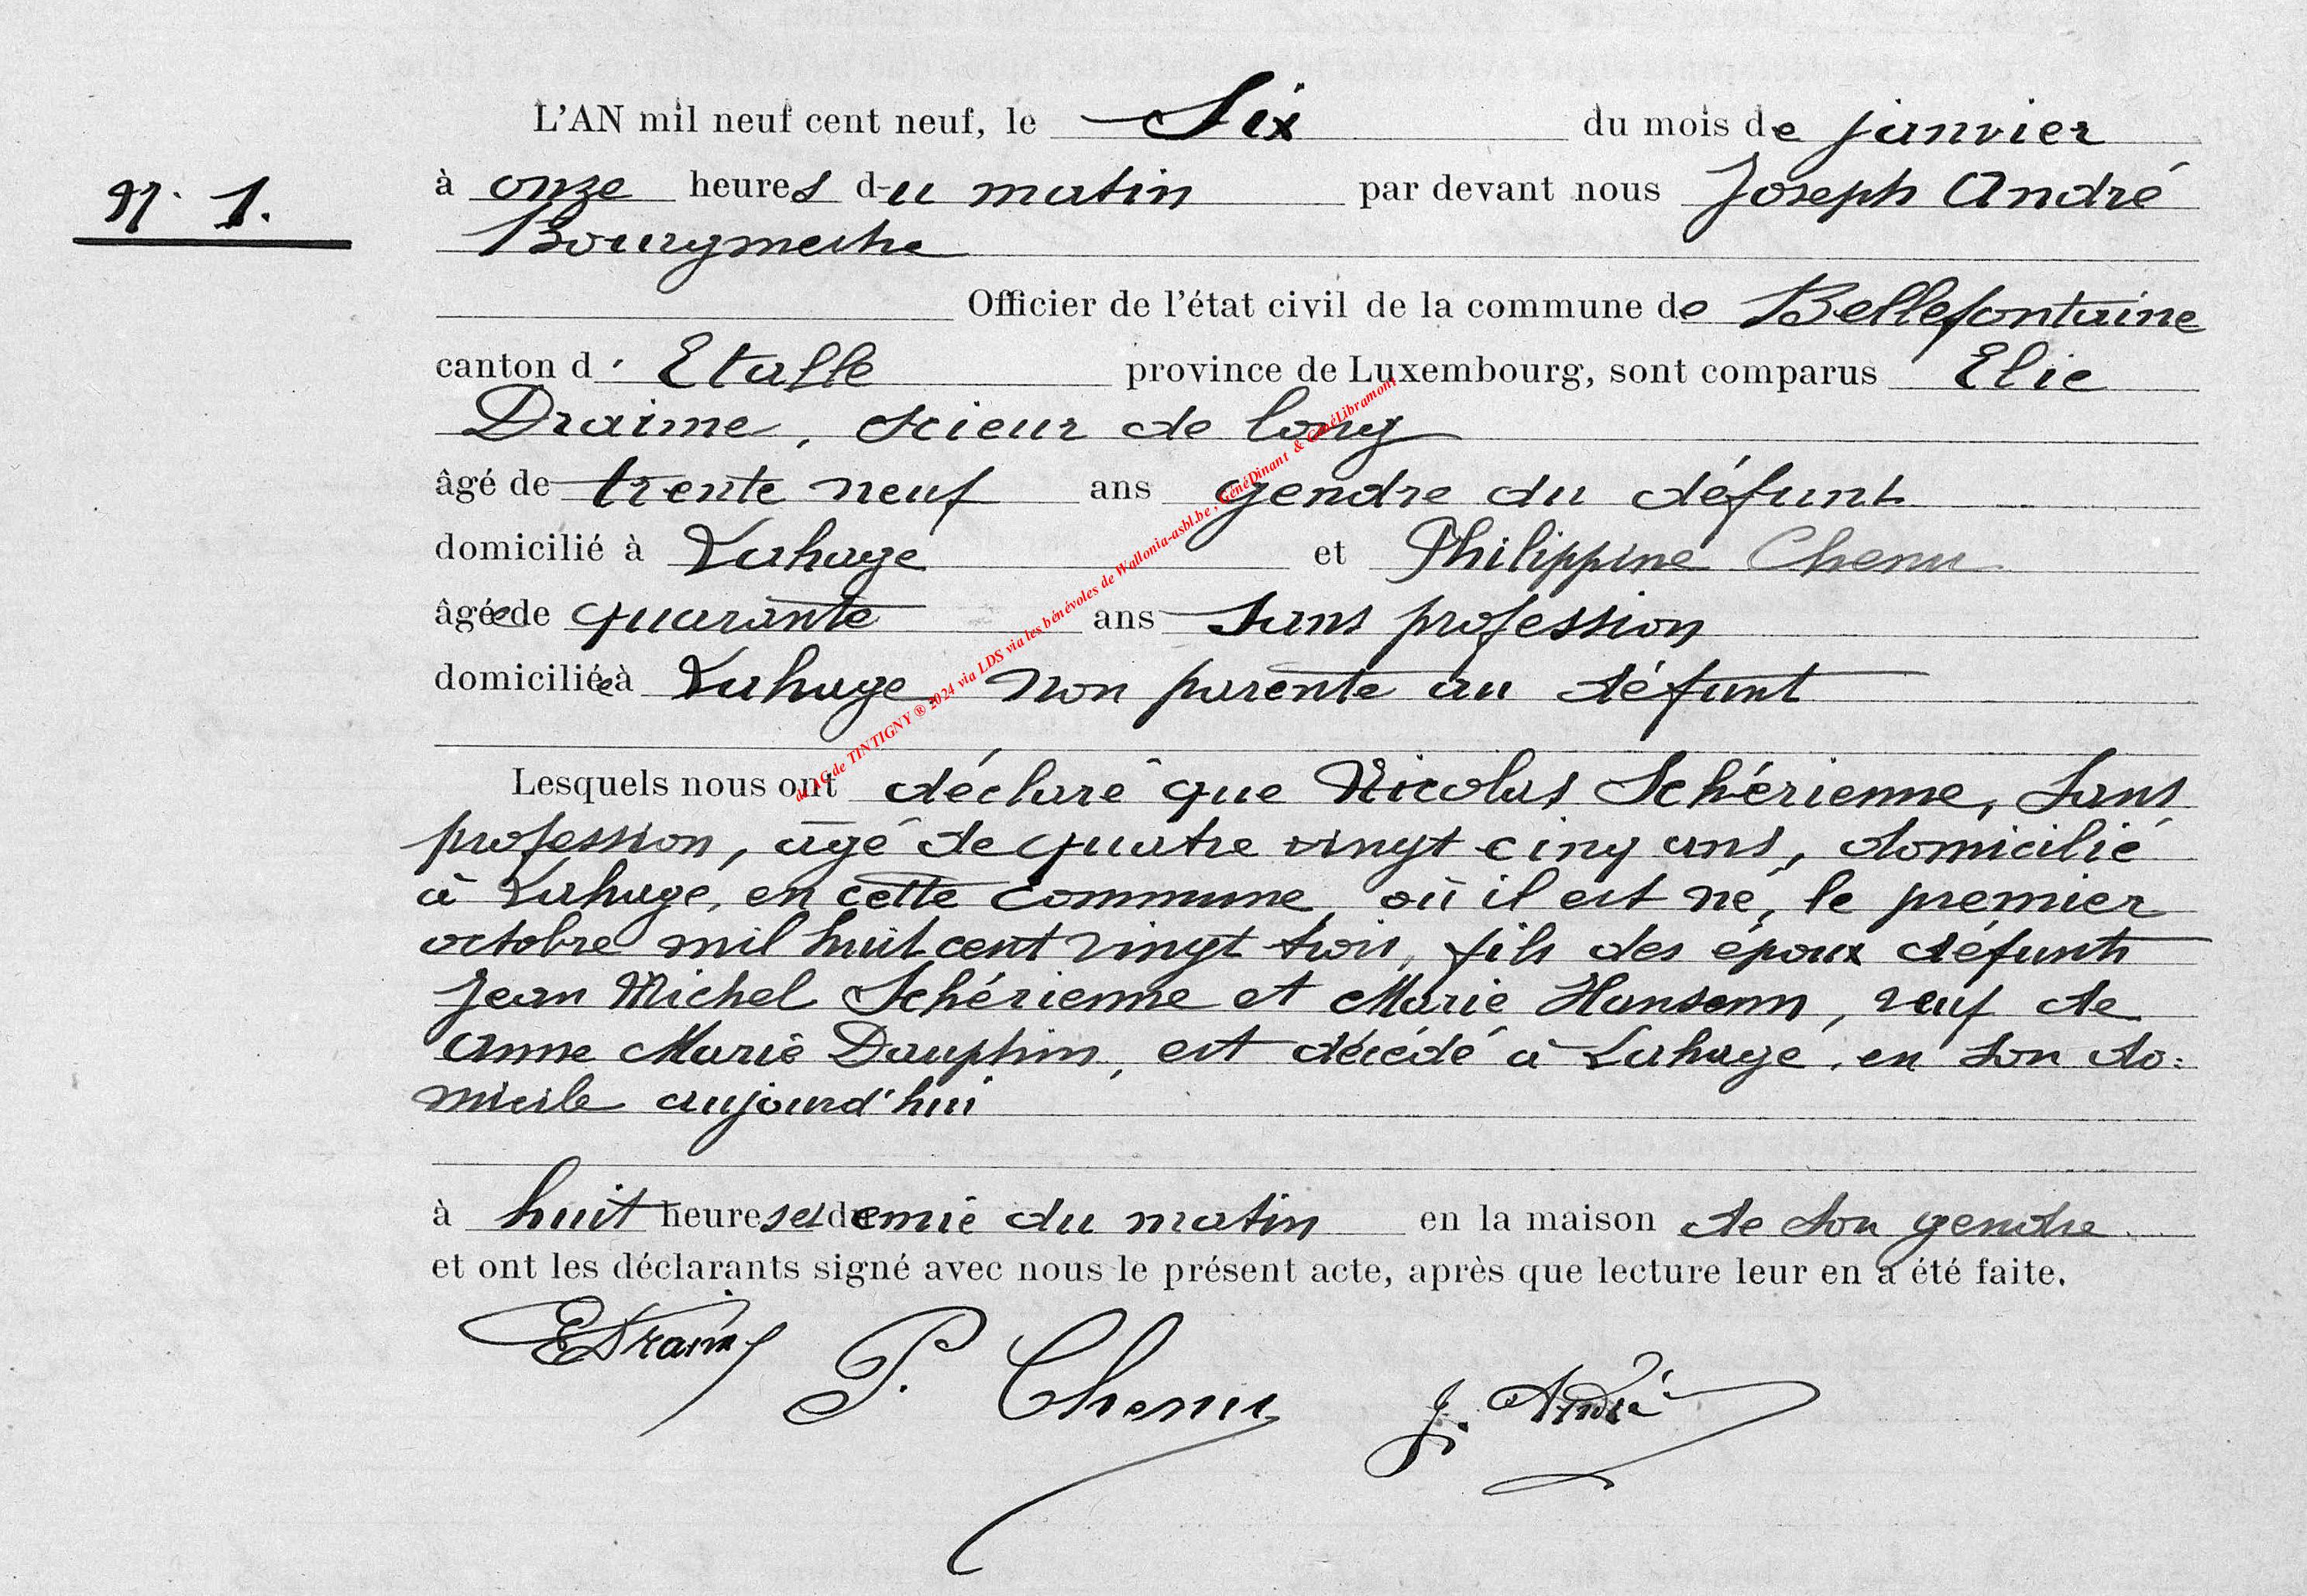 L'AN mil neuf cent neuf, le Six du mois de janvier
N° 1.
à onze heures du matin par devant nous Joseph André
Bourgmestre
Officier de l'état civil de la commune de Bellefontaine
canton d' Etalle province de Luxembourg, sont comparus Elie
Draime, scieur de long
âgé de trente neuf ans gendre du défunt
domicilié à Lahage et Philippine Chenu
âgée de quarante ans Sans profession
domiciliée à Lahage non parente au défunt
Lesquels nous ont déclaré que Nicolas Schérienne, Sans
profession, âgé de quatre vingt cinq ans, domicilié
à Lahage, en cette commune, où il est né, le premier
octobre mil huit cent vingt trois, fils des époux défunts
Jean Michel Schérienne et Marie Hansenn, veuf de
Anne Marie Dauphin, est décédé à Lahage, en son do=
micile aujourd'hui
à huit heures et demie du matin en la maison de son gendre
et ont les déclarants signé avec nous le présent acte, après que lecture leur en a été faite.
EDraime P. Chenu J. André
de AC de TINTIGNY ® 2024 via LDS via les bénévoles de Wallonia-asbl.be, GénéDinant & GénéLibramont